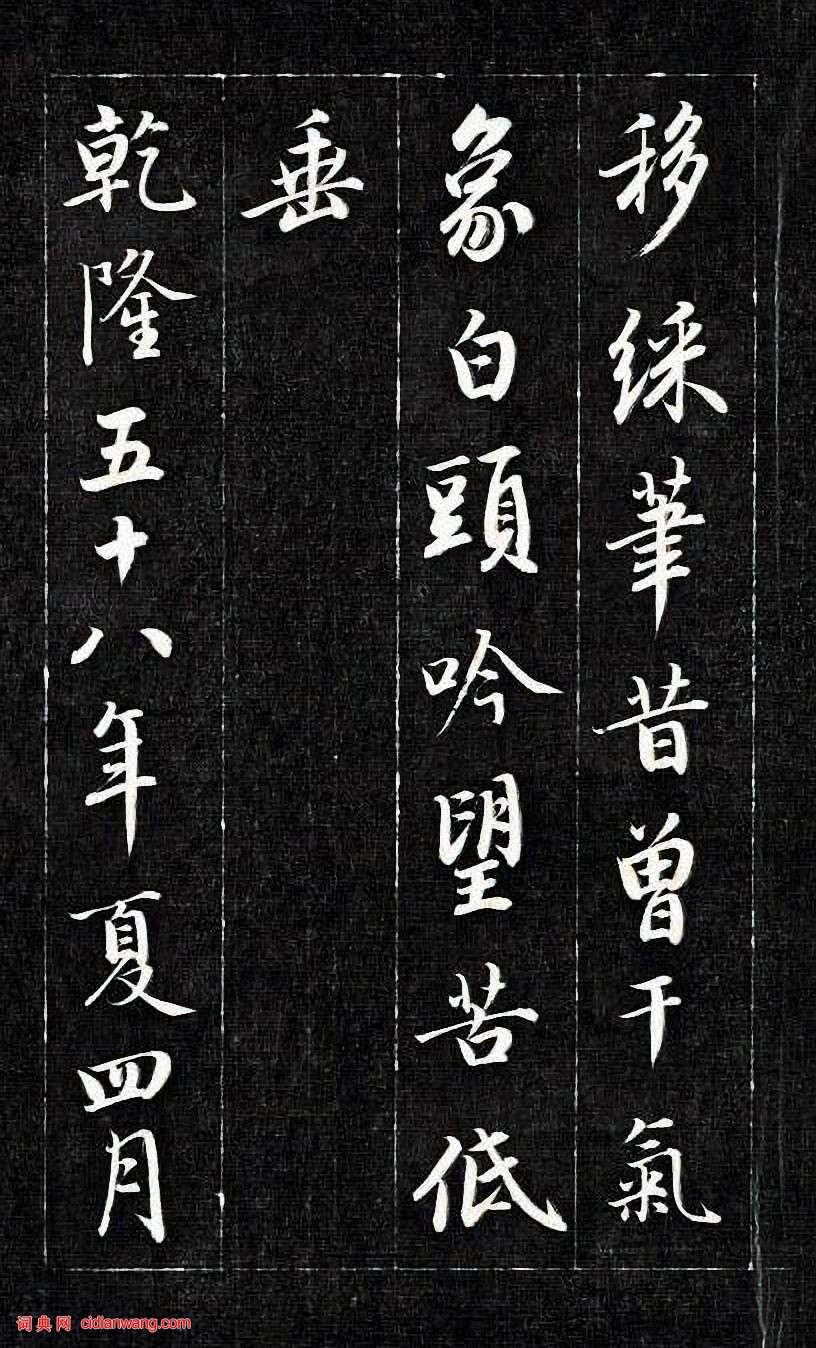 移綵筆昔曽干氣
象白頭吟望苦低
垂
乾隆五十八年夏四月
词典网 cidianwang.com